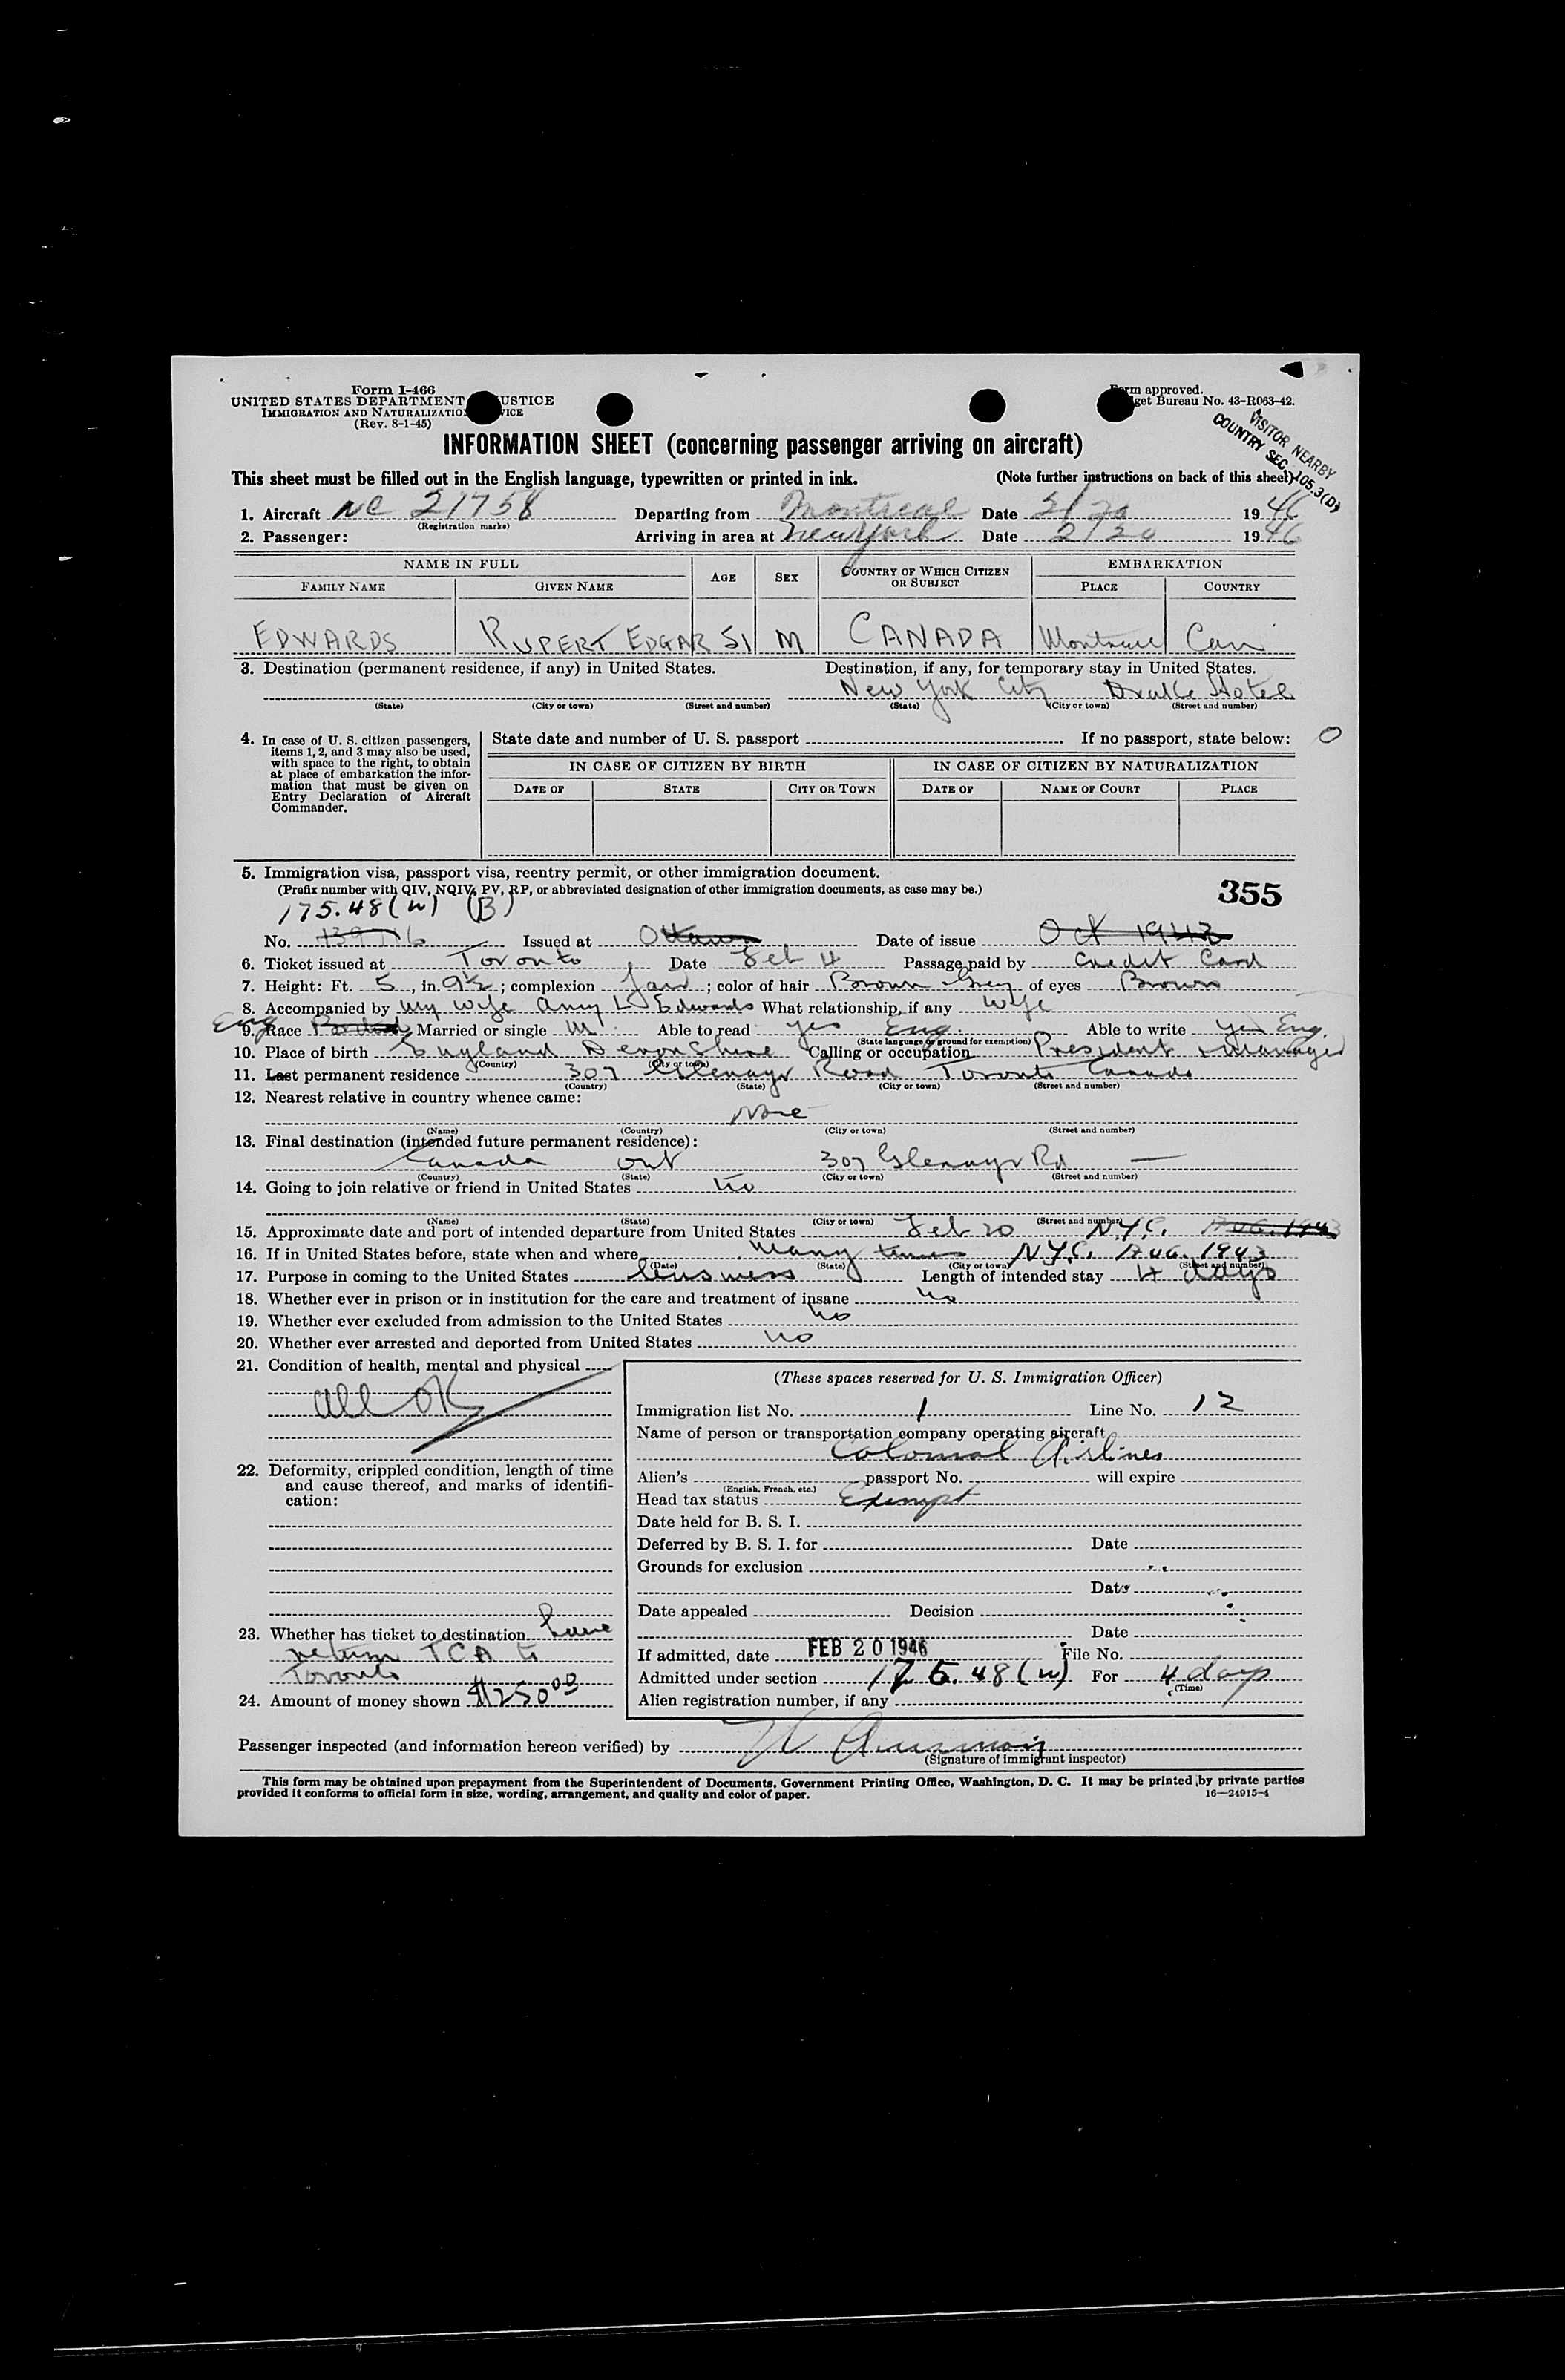 Form I-466
UNITED STATES DEPARTMENT JUSTICE
IMMIGRATION AND NATURALIZATION SERVICE
(Rev. 8-1-45)
Form approved.
Budget Bureau No. 43-R063-42.
VISITOR NEARBY
COUNTRY SEC. 105.3(D)
INFORMATION SHEET (concerning passenger arriving on aircraft)
This sheet must be filled out in the English language, typewritten or printed in ink. (Note further instructions on back of this sheet)
1. Aircraft NC 21758 Departing from Montreal Date 2/20 1946
(Registration marks)
2. Passenger: Arriving in area at New York Date 2/20 1946
NAME IN FULL AGE SEX COUNTRY OF WHICH CITIZEN OR SUBJECT EMBARKATION
FAMILY NAME GIVEN NAME PLACE COUNTRY
EDWARDS RUPERT EDGAR 51 M CANADA Montreal Can
3. Destination (permanent residence, if any) in United States. Destination, if any, for temporary stay in United States.
New York City Drake Hotel
(State) (City or town) (Street and number) (State) (City or town) (Street and number)
4. In case of U. S. citizen passengers, items 1, 2, and 3 may also be used, with space to the right, to obtain at place of embarkation the information that must be given on Entry Declaration of Aircraft Commander.
State date and number of U. S. passport If no passport, state below: O
IN CASE OF CITIZEN BY BIRTH IN CASE OF CITIZEN BY NATURALIZATION
DATE OF STATE CITY OR TOWN DATE OF NAME OF COURT PLACE
5. Immigration visa, passport visa, reentry permit, or other immigration document.
(Prefix number with QIV, NQIV, PV, RP, or abbreviated designation of other immigration documents, as case may be.)
355
175.48(w) (B)
No. Issued at Ottawa Date of issue Oct 1943
6. Ticket issued at Toronto Date Feb 4 Passage paid by Credit Card
7. Height: Ft. 5, in. 9½; complexion Fair; color of hair Brown Grey of eyes Brown
8. Accompanied by My wife Amy L Edwards What relationship, if any wife
Eng
9. Race Married or single M Able to read yes Eng. Able to write yes Eng.
(State language or ground for exemption)
10. Place of birth England Devonshire Calling or occupation President & Manager
(Country) (City or town)
11. Last permanent residence 307 Glenayr Road Toronto Canada
(Country) (State) (City or town) (Street and number)
12. Nearest relative in country whence came:
None
(Name) (Country) (City or town) (Street and number)
13. Final destination (intended future permanent residence):
Canada Ont 307 Glenayr Rd —
(Country) (State) (City or town) (Street and number)
14. Going to join relative or friend in United States no
(Name) (State) (City or town) (Street and number)
15. Approximate date and port of intended departure from United States Feb 20 N.Y.C. Aug. 1943
16. If in United States before, state when and where Many times N.Y.C. Aug. 1943
(Date) (State) (City or town) (Street and number)
17. Purpose in coming to the United States business Length of intended stay 4 days
18. Whether ever in prison or in institution for the care and treatment of insane no
19. Whether ever excluded from admission to the United States no
20. Whether ever arrested and deported from United States no
21. Condition of health, mental and physical
all OK
22. Deformity, crippled condition, length of time and cause thereof, and marks of identification:
23. Whether has ticket to destination have
return TCA to
Toronto
24. Amount of money shown $250.00
(These spaces reserved for U. S. Immigration Officer)
Immigration list No. 1 Line No. 12
Name of person or transportation company operating aircraft
Colonial Airlines
Alien's passport No. will expire
(English, French, etc.)
Head tax status Exempt
Date held for B. S. I.
Deferred by B. S. I. for Date
Grounds for exclusion
Date
Date appealed Decision
Date
If admitted, date FEB 20 1946 File No.
Admitted under section 175.48(w) For 4 days
(Time)
Alien registration number, if any
Passenger inspected (and information hereon verified) by
(Signature of immigrant inspector)
This form may be obtained upon prepayment from the Superintendent of Documents, Government Printing Office, Washington, D. C. It may be printed by private parties
provided it conforms to official form in size, wording, arrangement, and quality and color of paper.
16—24915-4